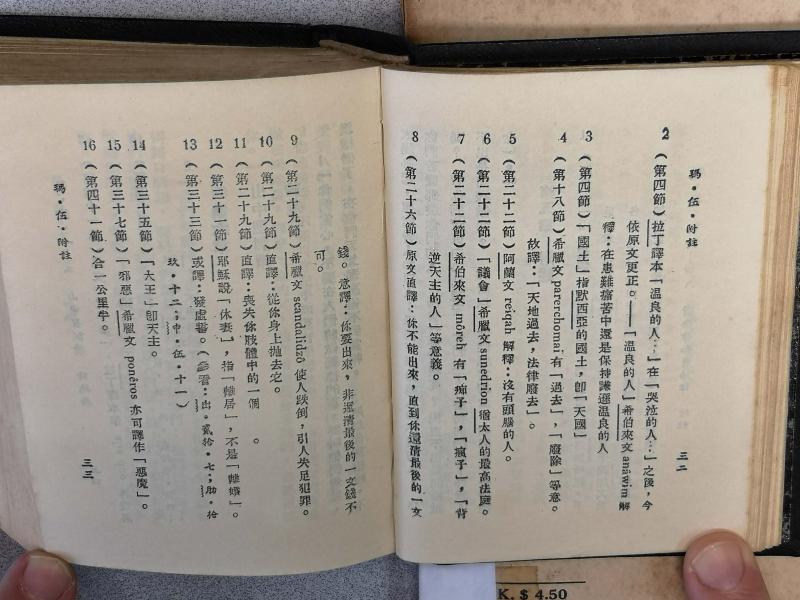 瑪·伍·附註
2（第四節）拉丁譯本「溫良的人…」在「哭泣的人…」之後，今
依原文更正。——「溫良的人」希伯來文 anâwim 解
釋：在患難痛苦中還是保持謙遜溫良的人
3（第四節）「國土」指默西亞的國土，卽「天國」
4（第十八節）希臘文 parerchomai 有「過去」，「廢除」等意。
故譯：「天地過去，法律廢去」。
5（第二十二節）阿蘭文 reiqah 解釋：沒有頭腦的人。
6（第二十二節）「議會」希臘文 sunedrion 猶太人的最高法庭。
7（第二十二節）希伯來文 môreh 有「痴子」，「瘋子」，「背
逆天主的人」等意義。
8（第二十六節）原文直譯：你不能出來，直到你還清最後的一文
三二
錢。意譯：你要出來，非還清最後的一文錢不
可。
9（第二十九節）希臘文 scandalidzô 使人跌倒，引人失足犯罪。
10（第二十九節）直譯：從你身上拋去之。
11（第二十九節）直譯：喪失你肢體中的一個。
12（第三十一節）耶穌說「休妻」，指「離居」，不是「離婚」。
13（第三十三節）或譯：發虛誓。（參看：出·貳拾·七；肋·拾
玖·十二；申·伍·十一）
14（第三十五節）「大王」卽天主。
15（第三十七節）「邪惡」希臘文 ponêros 亦可譯作「惡魔」。
16（第四十一節）合一公里半。
瑪·伍·附註
三三
K. $ 4.50